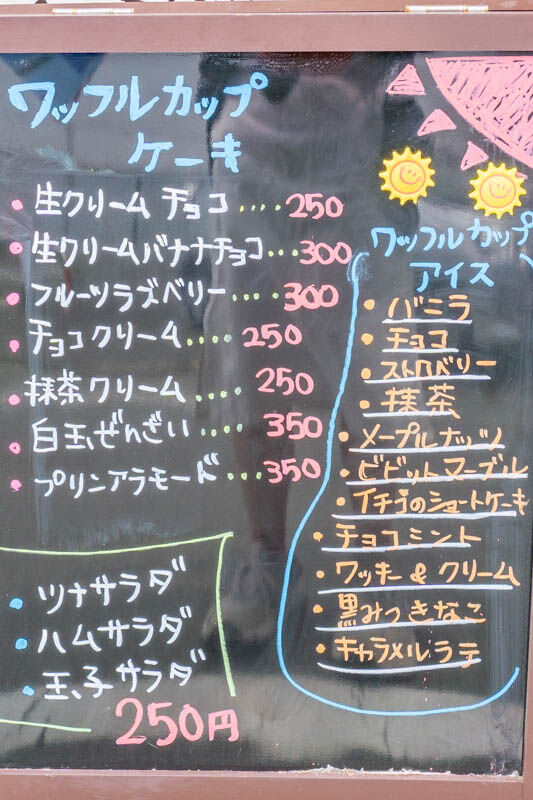 ワッフルカップ
ケーキ
生クリーム チョコ....250
生クリームバナナチョコ...300
フルーツラズベリー....300
チョコクリーム....250
抹茶クリーム....250
白玉ぜんざい....350
プリンアラモード....350
ツナサラダ
ハムサラダ
玉子サラダ
250円
ワッフルカップ
アイス
バニラ
チョコ
ストロベリー
抹茶
メープルナッツ
ビビットマーブル
イチゴのショートケーキ
チョコミント
ワッキー & クリーム
黒みつきなこ
キャラメルラテ